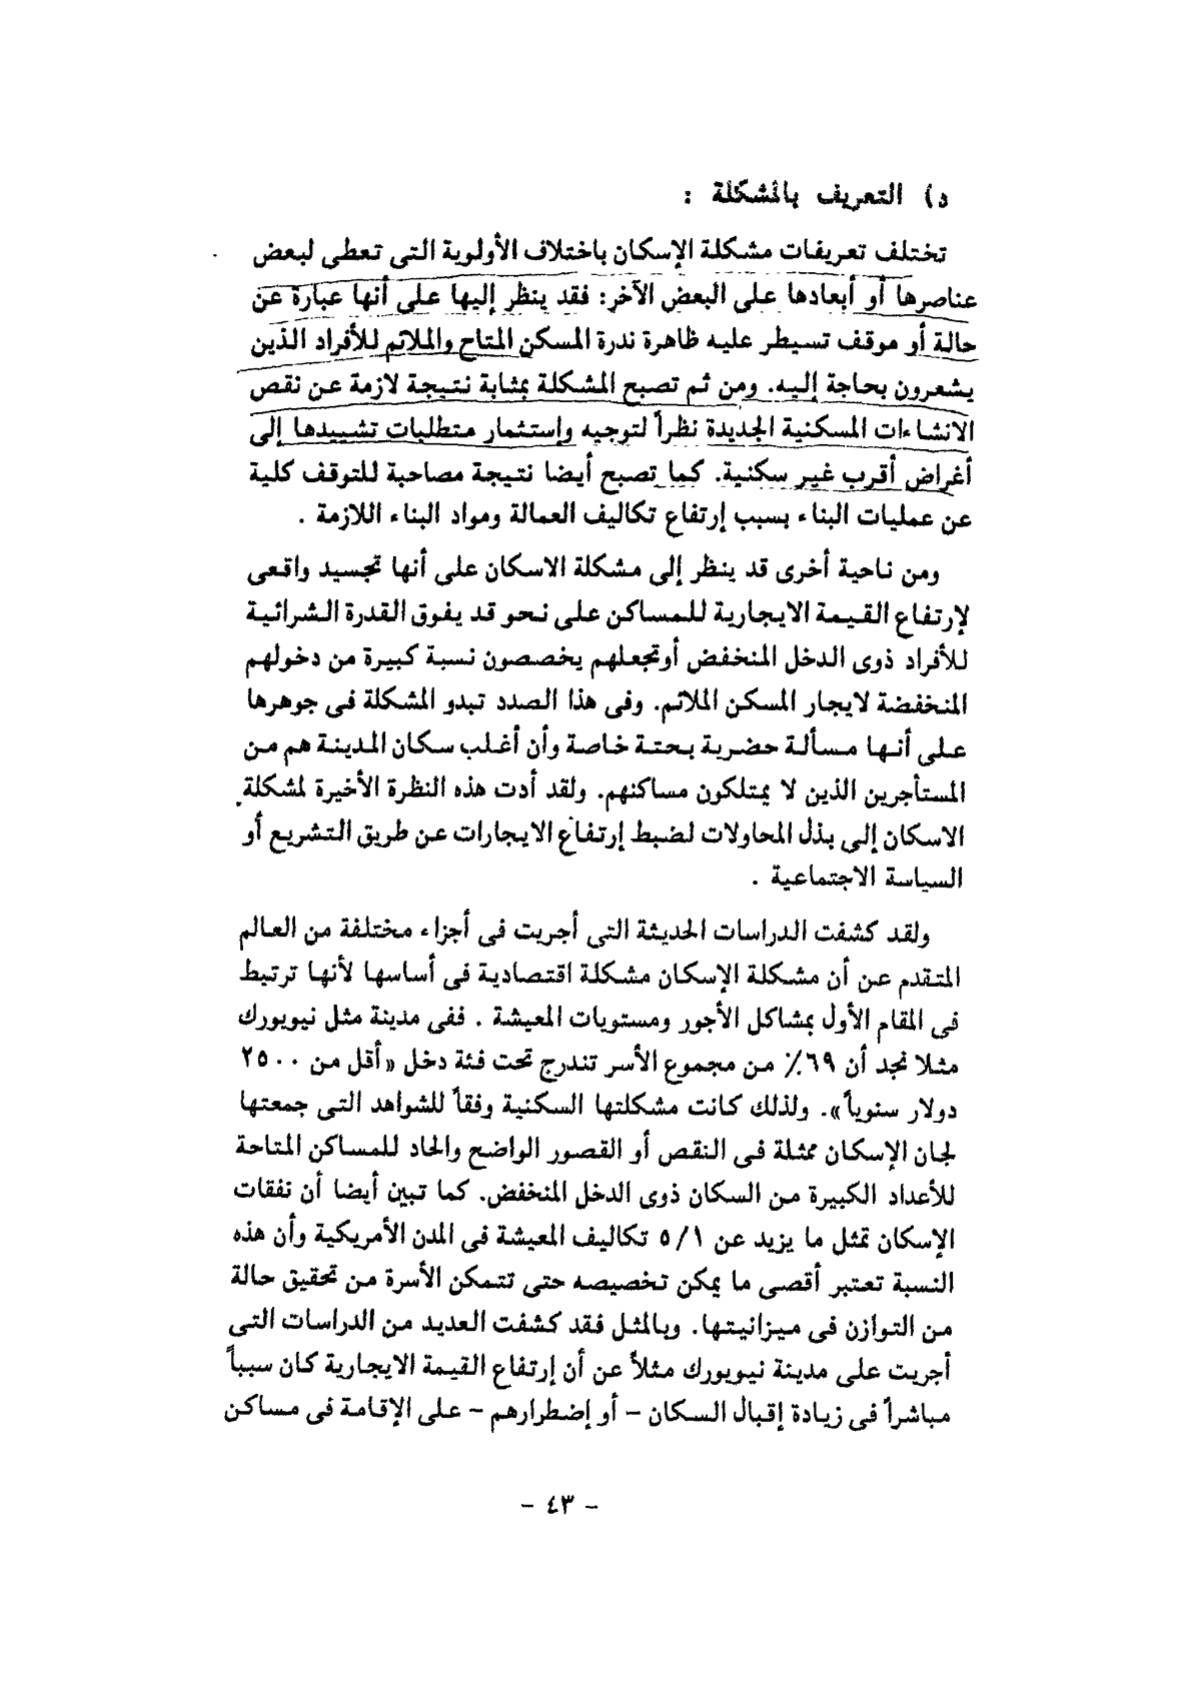 د) التعريف بالمشكلة :
تختلف تعريفات مشكلة الإسكان باختلاف الأولوية التى تعطى لبعض
عناصرها أو أبعادها على البعض الآخر: فقد ينظر إليها على أنها عبارة عن
حالة أو موقف تسيطر عليه ظاهرة ندرة المسكن المتاح والملائم للأفراد الذين
يشعرون بحاجة إليه. ومن ثم تصبح المشكلة بمثابة نتيجة لازمة عن نقص
الانشاءات المسكنية الجديدة نظراً لتوجيه وإستثمار متطلبات تشييدها إلى
أغراض أقرب غير سكنية. كما تصبح أيضا نتيجة مصاحبة للتوقف كلية
عن عمليات البناء بسبب إرتفاع تكاليف العمالة ومواد البناء اللازمة .
ومن ناحية أخرى قد ينظر إلى مشكلة الاسكان على أنها تجسيد واقعى
لإرتفاع القيمة الايجارية للمساكن على نحو قد يفوق القدرة الشرائية
للأفراد ذوى الدخل المنخفض أوتجعلهم يخصصون نسبة كبيرة من دخولهم
المنخفضة لايجار المسكن الملائم. وفى هذا الصدد تبدو المشكلة فى جوهرها
على أنها مسألة حضرية بحتة خاصة وأن أغلب سكان المدينة هم من
المستأجرين الذين لا يمتلكون مساكنهم. ولقد أدت هذه النظرة الأخيرة لمشكلة
الاسكان إلى بذل المحاولات لضبط إرتفاع الايجارات عن طريق التشريع أو
السياسة الاجتماعية .
ولقد كشفت الدراسات الحديثة التى أجريت فى أجزاء مختلفة من العالم
المتقدم عن أن مشكلة الإسكان مشكلة اقتصادية فى أساسها لأنها ترتبط
فى المقام الأول بمشاكل الأجور ومستويات المعيشة . ففى مدينة مثل نيويورك
مثلا نجد أن ٦٩٪ من مجموع الأسر تندرج تحت فئة دخل «أقل من ٢٥٠٠
دولار سنوياً». ولذلك كانت مشكلتها السكنية وفقاً للشواهد التى جمعتها
لجان الإسكان ممثلة فى النقص أو القصور الواضح والحاد للمساكن المتاحة
للأعداد الكبيرة من السكان ذوى الدخل المنخفض. كما تبين أيضا أن نفقات
الإسكان تمثل ما يزيد عن ٥/١ تكاليف المعيشة فى المدن الأمريكية وأن هذه
النسبة تعتبر أقصى ما يمكن تخصيصه حتى تتمكن الأسرة من تحقيق حالة
من التوازن فى ميزانيتها. وبالمثل فقد كشفت العديد من الدراسات التى
أجريت على مدينة نيويورك مثلاً عن أن إرتفاع القيمة الايجارية كان سبباً
مباشراً فى زيادة إقبال السكان – أو إضطرارهم – على الإقامة فى مساكن
– ٤٣ –